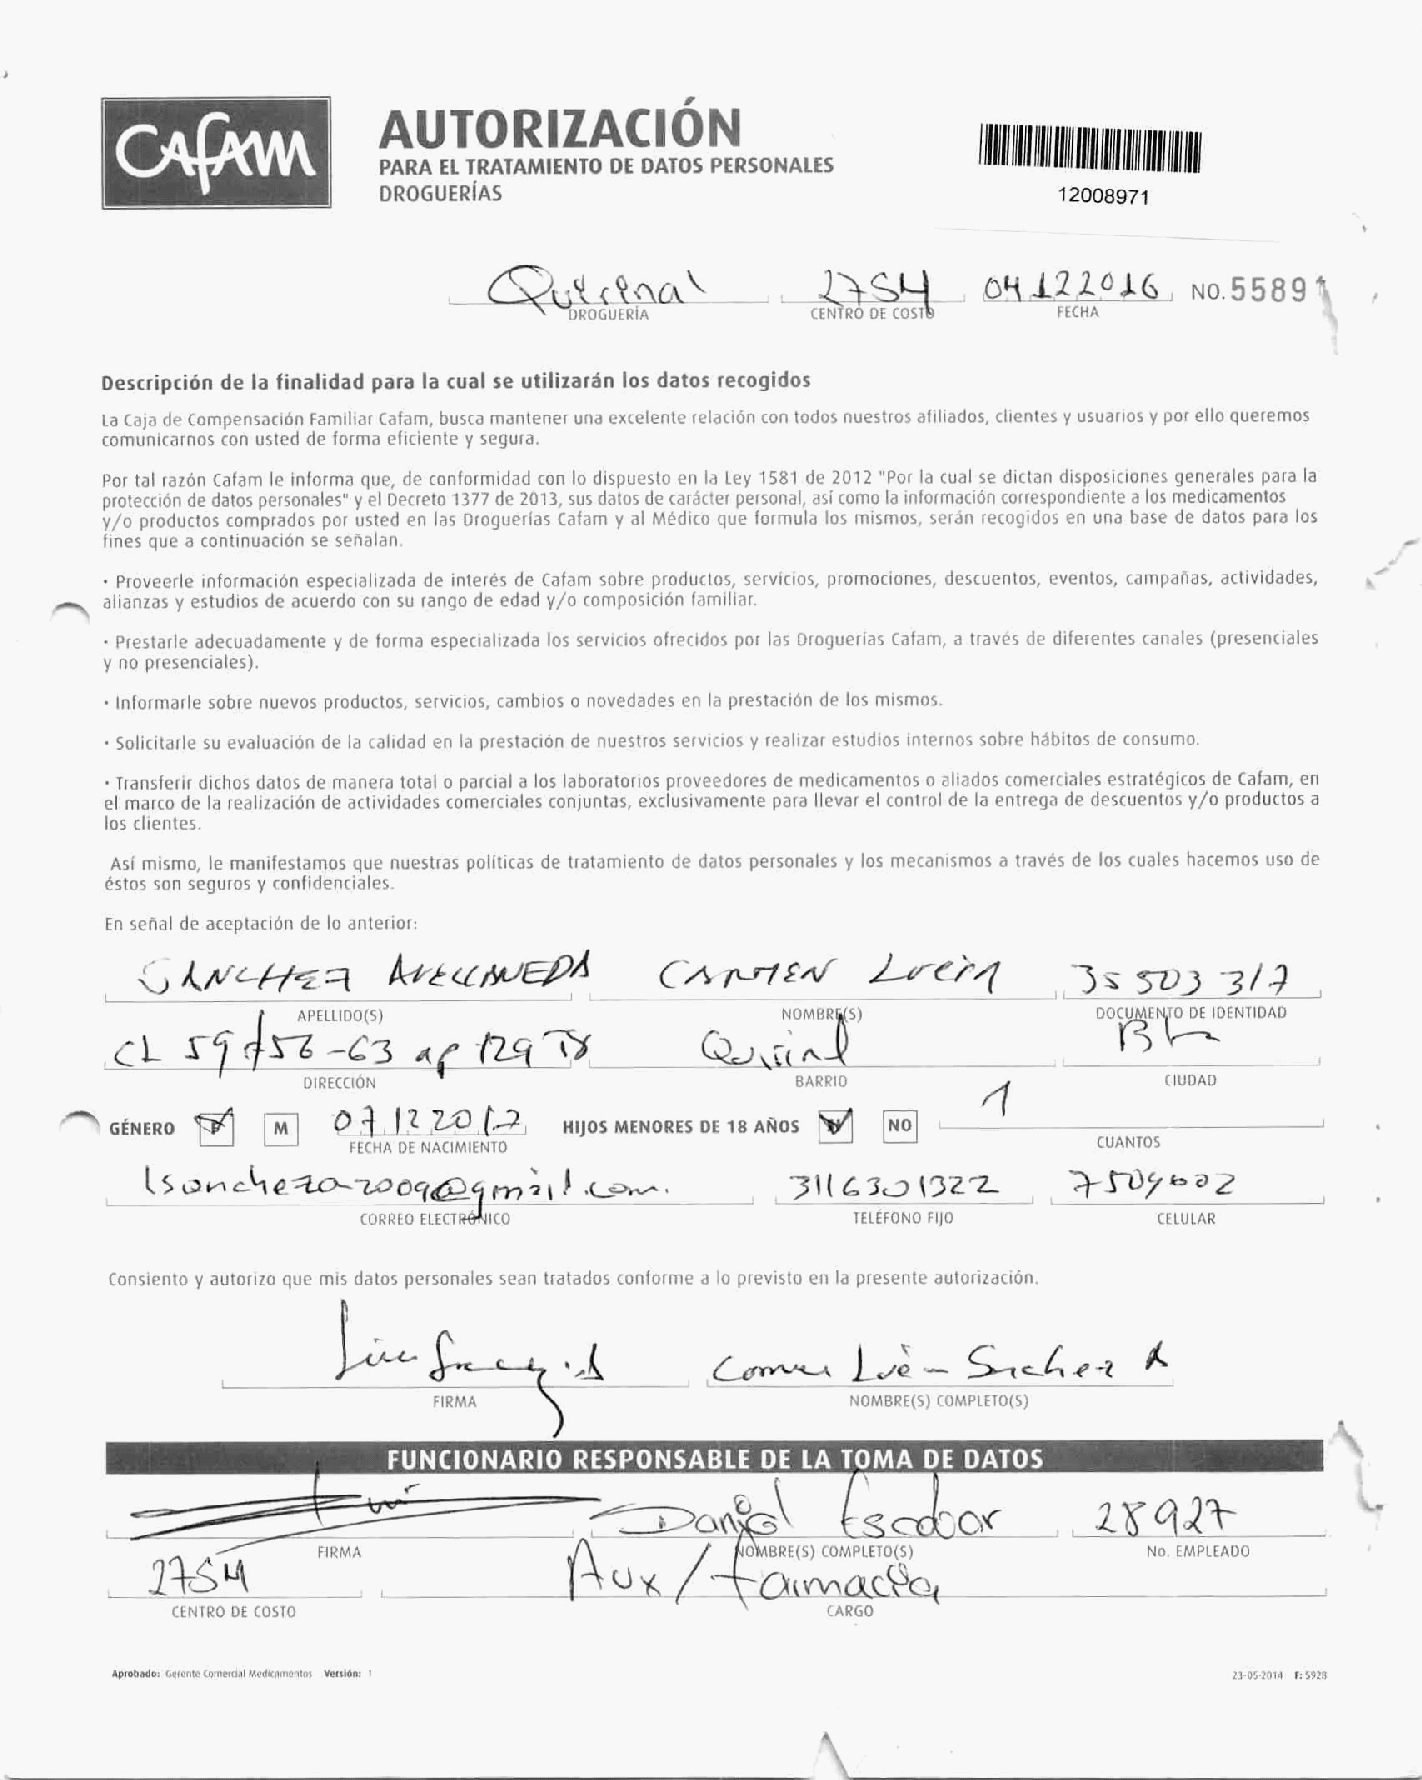 CAFAM
AUTORIZACIÓN
PARA EL TRATAMIENTO DE DATOS PERSONALES
DROGUERÍAS
12008971
Quirinal 2754 04122016 NO. 5589
DROGUERÍA CENTRO DE COSTO FECHA
Descripción de la finalidad para la cual se utilizarán los datos recogidos
La Caja de Compensación Familiar Cafam, busca mantener una excelente relación con todos nuestros afiliados, clientes y usuarios y por ello queremos
comunicarnos con usted de forma eficiente y segura.
Por tal razón Cafam le informa que, de conformidad con lo dispuesto en la Ley 1581 de 2012 "Por la cual se dictan disposiciones generales para la
protección de datos personales" y el Decreto 1377 de 2013, sus datos de carácter personal, así como la información correspondiente a los medicamentos
y/o productos comprados por usted en las Droguerías Cafam y al Médico que formula los mismos, serán recogidos en una base de datos para los
fines que a continuación se señalan.
· Proveerle información especializada de interés de Cafam sobre productos, servicios, promociones, descuentos, eventos, campañas, actividades,
alianzas y estudios de acuerdo con su rango de edad y/o composición familiar.
· Prestarle adecuadamente y de forma especializada los servicios ofrecidos por las Droguerías Cafam, a través de diferentes canales (presenciales
y no presenciales).
· Informarle sobre nuevos productos, servicios, cambios o novedades en la prestación de los mismos.
· Solicitarle su evaluación de la calidad en la prestación de nuestros servicios y realizar estudios internos sobre hábitos de consumo.
· Transferir dichos datos de manera total o parcial a los laboratorios proveedores de medicamentos o aliados comerciales estratégicos de Cafam, en
el marco de la realización de actividades comerciales conjuntas, exclusivamente para llevar el control de la entrega de descuentos y/o productos a
los clientes.
Así mismo, le manifestamos que nuestras políticas de tratamiento de datos personales y los mecanismos a través de los cuales hacemos uso de
éstos son seguros y confidenciales.
En señal de aceptación de lo anterior:
SANCHEZ AVELLANEDA CARMEN LUCIA 35 503 317
APELLIDO(S) NOMBRE(S) DOCUMENTO DE IDENTIDAD
CL 59 #56-63 ap 129 T8 Quirinal
DIRECCIÓN BARRIO CIUDAD
GÉNERO F M 07122012 HIJOS MENORES DE 18 AÑOS NO 1
FECHA DE NACIMIENTO CUANTOS
lsancheza2009@gmail.com. 3116301322 7509602
CORREO ELECTRÓNICO TELÉFONO FIJO CELULAR
Consiento y autorizo que mis datos personales sean tratados conforme a lo previsto en la presente autorización.
Carmen Lucia Sanchez A
FIRMA NOMBRE(S) COMPLETO(S)
FUNCIONARIO RESPONSABLE DE LA TOMA DE DATOS
Daniel Escobar 28927
FIRMA NOMBRE(S) COMPLETO(S) No. EMPLEADO
2754 Aux/farmacia
CENTRO DE COSTO CARGO
Aprobado: Gerente Comercial Medicamentos Versión: 1 23-05-2014 F: 5928